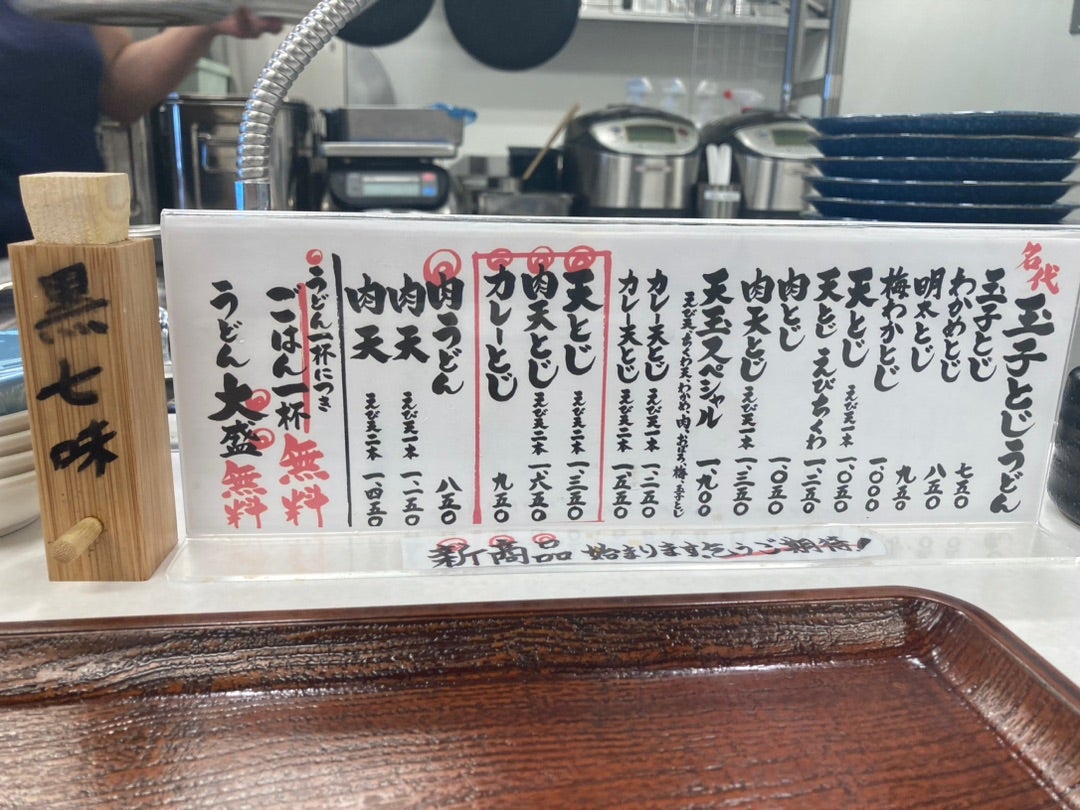 名代 玉子とじうどん
玉子とじ 七五〇
わかめとじ 八五〇
明太とじ 九五〇
梅わかとじ 一、〇〇〇
天とじ えび天一本 一、〇五〇
天とじ えびちくわ 一、三五〇
肉とじ 一、〇五〇
肉天とじ えび天一本 一、三五〇
天玉スペシャル 一、九〇〇
えび天、ちくわ天、わかめ、肉、おぼろ、梅、玉子とじ
カレー天とじ えび天一本 一、二五〇
カレー天とじ えび天二本 一、五五〇
天とじ えび天二本 一、三五〇
肉天とじ えび天二本 一、六五〇
カレーとじ 九五〇
肉うどん 八五〇
肉天 えび天一本 一、一五〇
肉天 えび天二本 一、四五〇
うどん一杯につき
ごはん一杯 無料
うどん大盛 無料
新商品 始まります乞うご期待!
黒七味